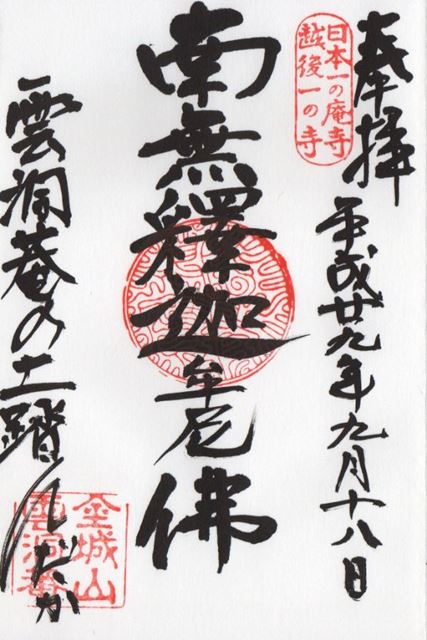 奉拝
日本一の庵寺
越後一の寺
平成廿九年九月十八日
南無釋迦牟尼佛
雲洞菴の土踏んだか
金城山
雲洞菴